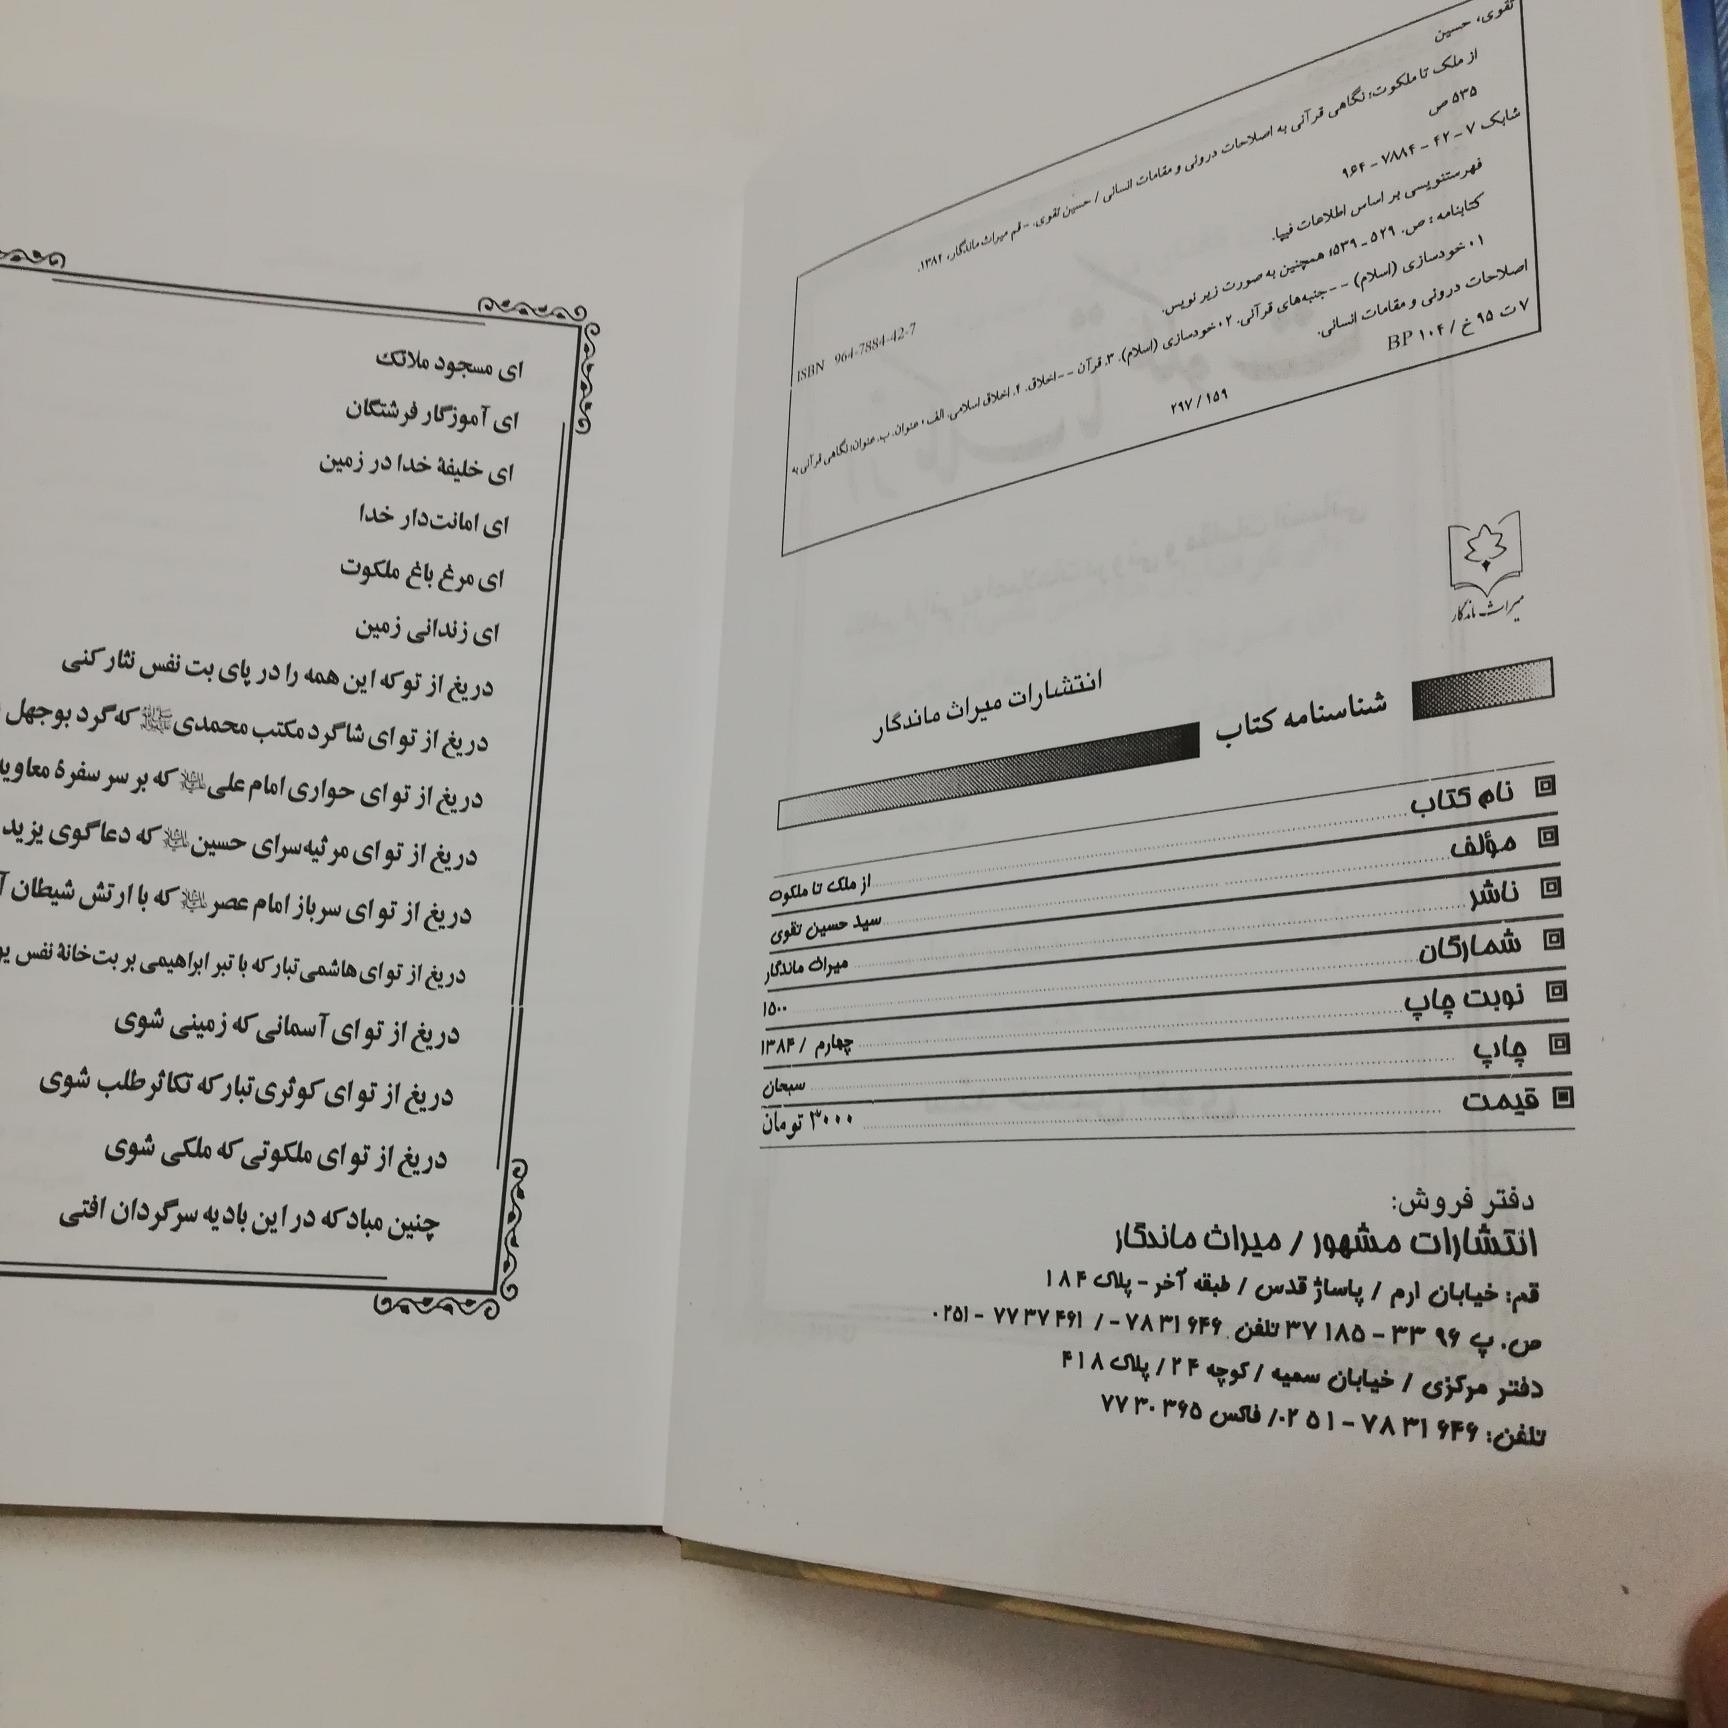 تقوی، حسین
از ملک تا ملکوت؛ نگاهی قرآنی به اصلاحات درونی و مقامات انسانی / حسین تقوی. - قم میراث ماندگار، ۱۳۸۲.
۵۳۵ ص
شابک ۷ - ۴۲ - ۷۸۸۴ - ۹۶۴
ISBN 964-7884-42-7
فهرستنویسی بر اساس اطلاعات فیپا.
کتابنامه : ص. ۵۲۹ - ۵۳۹؛ همچنین به صورت زیر نویس.
۱. خودسازی (اسلام) -- جنبه‌های قرآنی. ۲. خودسازی (اسلام). ۳. قرآن -- اخلاق. ۴. اخلاق اسلامی. الف. عنوان. ب. عنوان: نگاهی قرآنی به
اصلاحات درونی و مقامات انسانی.
۷ ت ۹۵ خ / ۱۰۴ BP
۲۹۷ / ۱۵۹
میراث ماندگار
شناسنامه کتاب
انتشارات میراث ماندگار
نام کتاب از ملک تا ملکوت
مؤلف سید حسین تقوی
ناشر میراث ماندگار
شمارگان ۱۵۰۰
نوبت چاپ چهارم / ۱۳۸۴
چاپ سبحان
قیمت ۳۰۰۰ تومان
دفتر فروش:
انتشارات مشهور / میراث ماندگار
قم: خیابان ارم / پاساژ قدس / طبقه آخر - پلاک ۱۸۴
ص. پ ۹۶ ۳۳ - ۳۷۱۸۵ تلفن ۷۸۳۱۶۴۶ - / ۷۷۳۷۴۶۱ - ۰۲۵۱
دفتر مرکزی / خیابان سمیه / کوچه ۲۴ / پلاک ۴۱۸
تلفن: ۷۸۳۱۶۴۶ - ۰۲۵۱ / فاکس ۷۷۳۰۳۶۵
ای مسجود ملائک
ای آموزگار فرشتگان
ای خلیفهٔ خدا در زمین
ای امانت‌دار خدا
ای مرغ باغ ملکوت
ای زندانی زمین
دریغ از تو که این همه را در پای بت نفس نثار کنی
دریغ از تو ای شاگرد مکتب محمدی ﷺ که گرد بوجهل
دریغ از تو ای حواری امام علی علیه‌السلام که بر سر سفرهٔ معاویه
دریغ از تو ای مرثیه‌سرای حسین علیه‌السلام که دعاگوی یزید
دریغ از تو ای سرباز امام عصر علیه‌السلام که با ارتش شیطان
دریغ از تو ای هاشمی تبار که با تبر ابراهیمی بر بت‌خانهٔ نفس
دریغ از تو ای آسمانی که زمینی شوی
دریغ از تو ای کوثری تبار که تکاثر طلب شوی
دریغ از تو ای ملکوتی که ملکی شوی
چنین مباد که در این بادیه سرگردان افتی